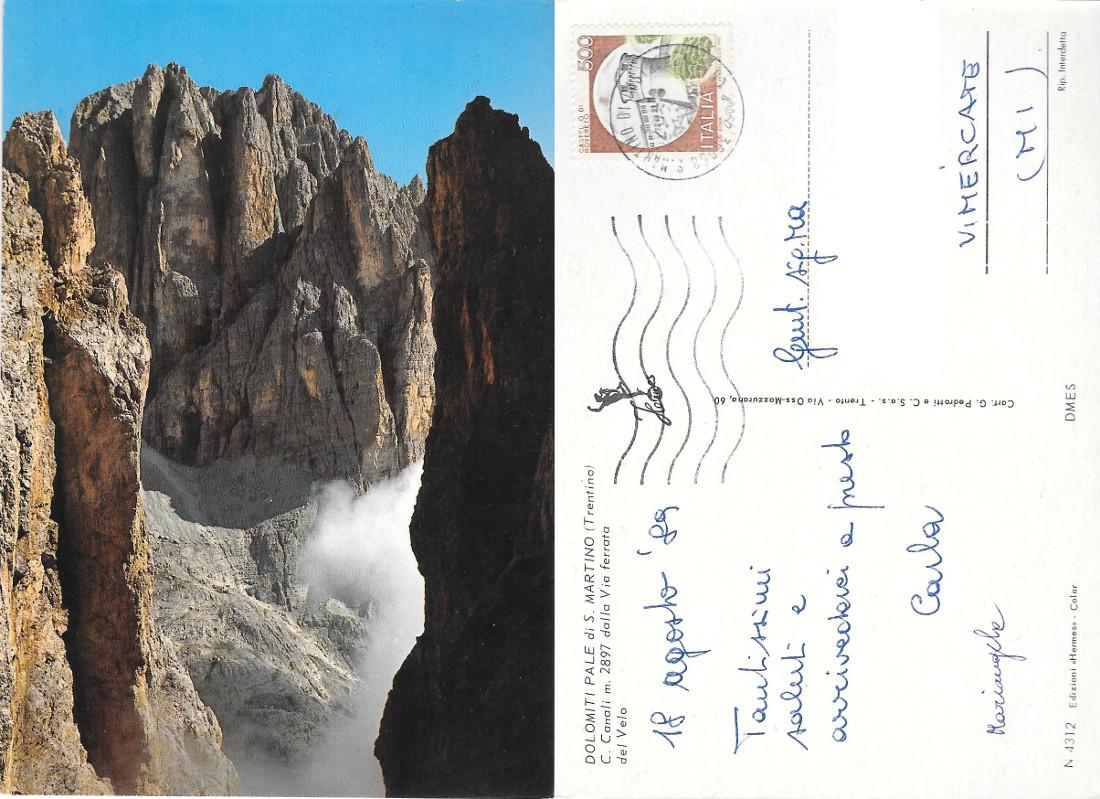 DOLOMITI PALE di S. MARTINO (Trentino)
C. Canali m. 2897 dalla Via ferrata
del Velo
18 agosto '89
Tantissimi
saluti e
arrivederci a presto
Carla
Mariangela
N 4312 Edizioni «Hermes» - Color
DMES
Rip. Interdetta
Cart. G. Pedrotti e C. S.a.s. - Trento - Via Oss-Mazzurana, 60
Hermes
500
ITALIA
CASTELLO DI
ROVERETO
S. MARTINO DI
Gent. sig.na
VIMERCATE
(MI)